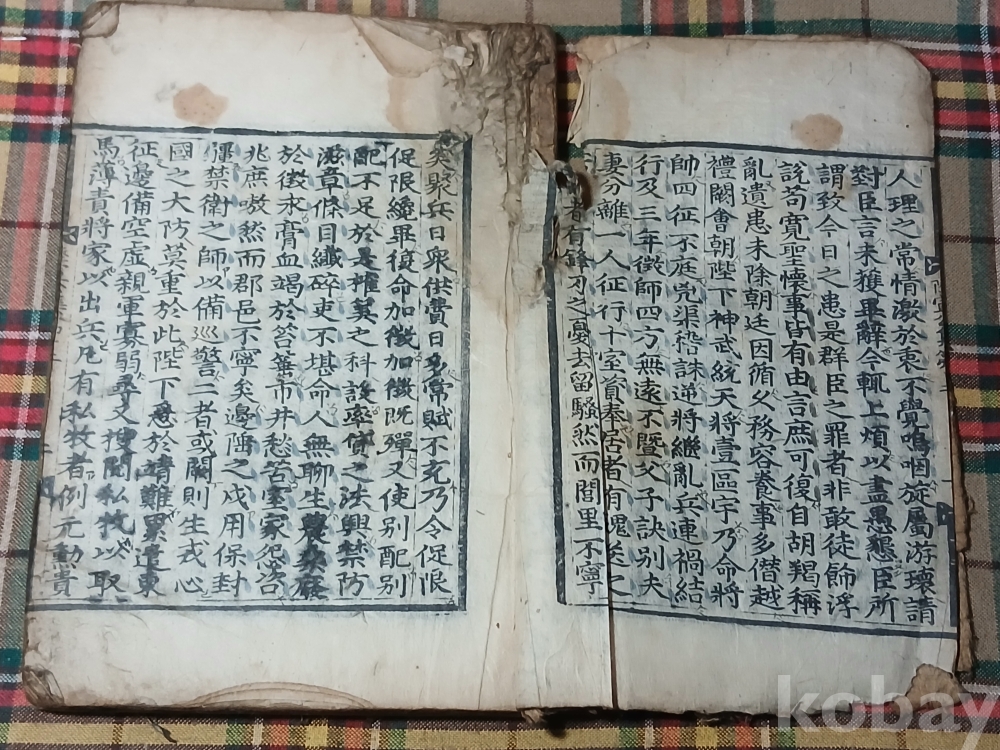 人理之常情激於衷不覺嗚咽旋屬游瓌請
對臣言未獲畢辭今輒上煩以盡愚懇臣所
謂致今日之患是群臣之罪者非敢徒飾浮
說苟寬聖懷事皆有由言庶可復自胡羯稱
亂遺患未除朝廷因循久務容養事多僭越
禮闕會朝陛下神武統天將壹區宇乃命將
帥四征不庭兇渠稽誅逆將繼亂兵連禍結
行及三年徵師四方無遠不曁父子訣別夫
妻分離一人征行十室資奉居者有餽送之
者有鋒刃之憂去留騷然而閭里不寧
矣聚兵日衆供費日多常賦不充乃令促限
促限纔畢復命加徵加徵既殫又使別配別
配不足於是榷筭之科設率貸之法興禁防
滋章條目纖碎吏不堪命人無聊生農桑廢
於徵求膏血竭於笞箠市井愁苦室家怨咨
兆庶嗷然而郡邑不寧矣邊陲之戍用保封
禁衛之師以備巡警二者或闕則生戎心
國之大防莫重於此陛下急於靖難累遣東
征邊備空虛親軍寡弱尋又搜閱私牧以取
馬薄責將家以出兵凡有私牧者例元勳貴
kobay